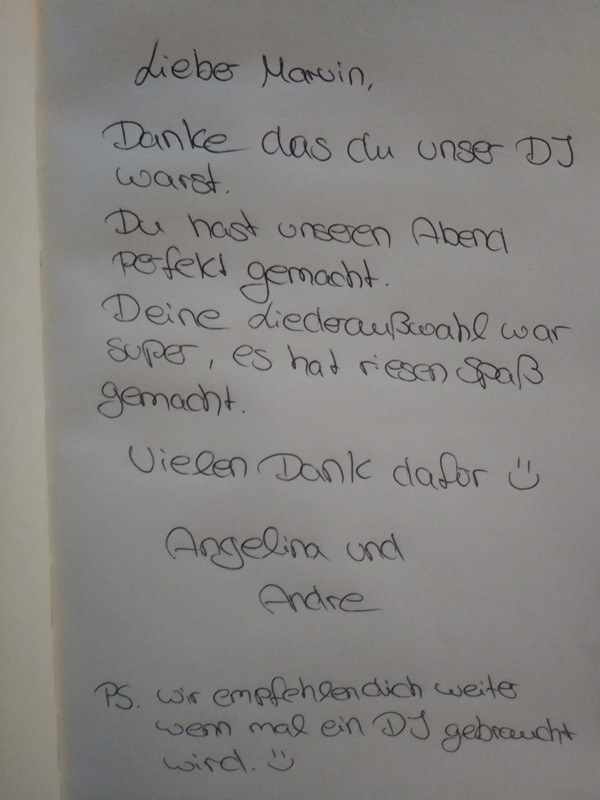 Lieber Marvin,
Danke das du unser DJ
warst.
Du hast unseren Abend
perfekt gemacht.
Deine Liederaußwahl war
super, es hat riesen Spaß
gemacht.
Vielen Dank dafür :)
Angelina und
Andre
PS. wir empfehlen dich weiter
wenn mal ein DJ gebraucht
wird. :)